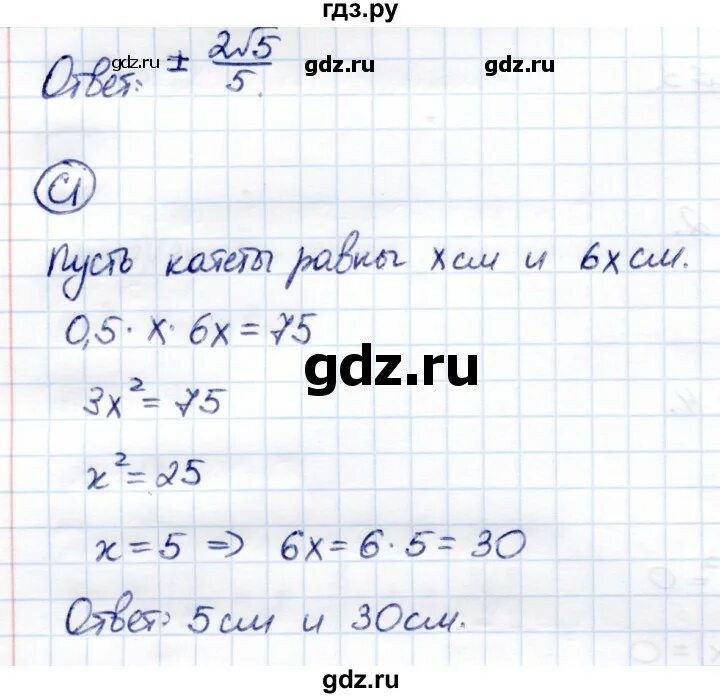 гдз.ру
Ответ: ± 2√5/5.
gdz.ru gdz.ru gdz.ru
С1
Пусть катеты равны x см и 6x см.
0,5 · x · 6x = 75
gdz.ru
3x² = 75
x² = 25
x = 5 => 6x = 6 · 5 = 30
gdz.ru gdz.ru
Ответ: 5 см и 30 см.
gdz.ru